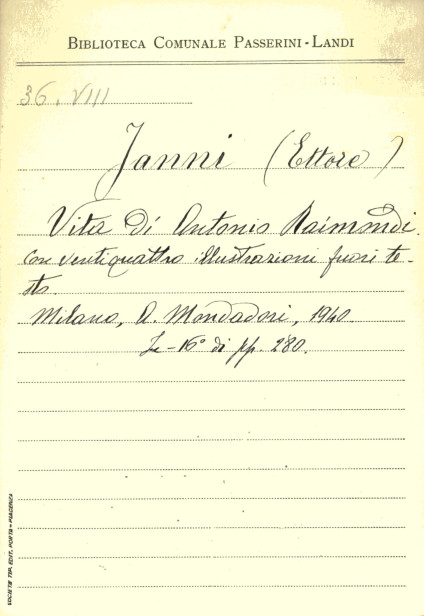 BIBLIOTECA COMUNALE PASSERINI-LANDI
36. VIII
Janni (Ettore)
Vita di Antonio Raimondi.
Con ventiquattro illustrazioni fuori te-
sto.
Milano, A. Mondadori, 1940
In-16° di pp. 280.
SOCIETÀ TIP. EDIT. PORTA - PIACENZA